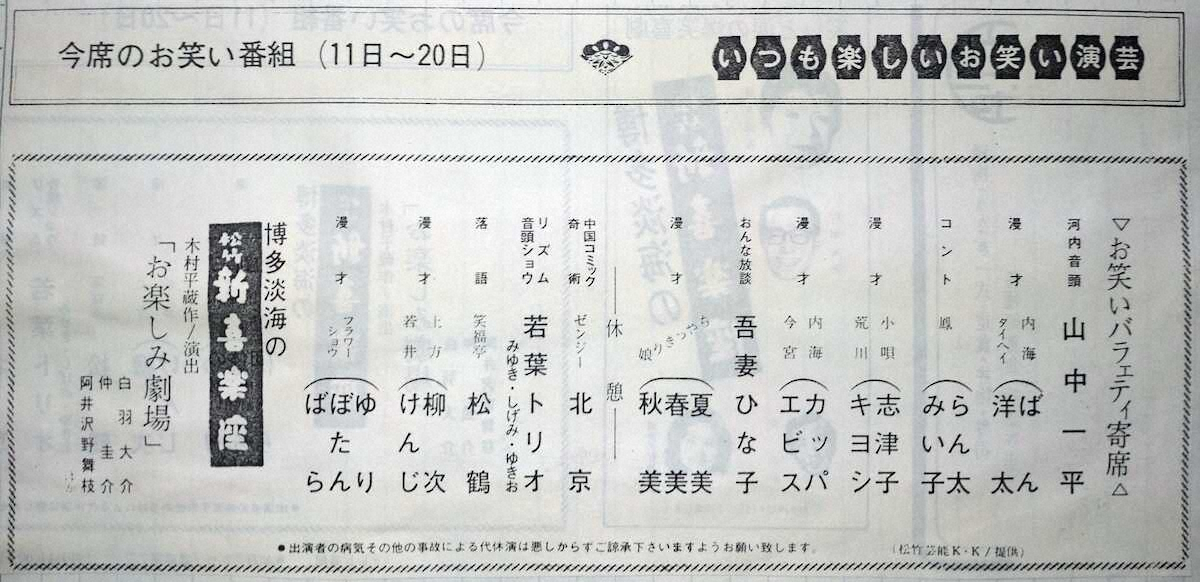 いつも楽しいお笑い演芸
今席のお笑い番組（11日～20日）
▽お笑いバラエティ寄席△
河内音頭 山中一平
漫才 内海 タイヘイ ばん 洋太
コント 鳳 らん太 みい子
漫才 小唄 荒川 志津子 キヨシ
漫才 内海 今宮 カッパ エビス
おんな放談 吾妻ひな子
―休憩―
漫才 ちゃっきり娘 夏美 春美 秋美
中国コミック奇術 ゼンジー北京
リズム音頭ショウ 若葉トリオ
みゆき・しげみ・ゆきお
落語 笑福亭松鶴
漫才 上方 若井 柳次 けんじ
漫才 フラワーショウ ゆり ぼたん ばら
博多淡海の
松竹新喜楽座
木村平蔵作/演出
「お楽しみ劇場」
白羽大介
仲圭介
阿井沢野舞枝
●出演者の病気その他の事故による代休演は悪しからずご諒承下さいますようお願い致します。
（松竹芸能K・K/提供）